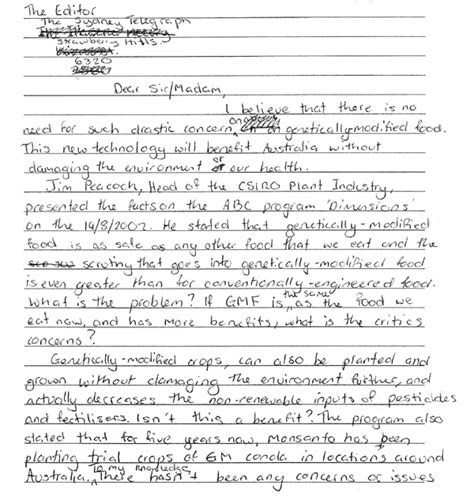 The Editor
The Sydney Telegraph
Strawberry Hills.
6320
Dear Sir/Madam,
I believe that there is no
need for such drastic concern, on genetically-modified food.
This new technology will benefit Australia without
damaging the environment or our health.
Jim Peacoch, Head of the CSIRO Plant Industry,
presented the facts on the ABC program 'Dimensions'
on the 14/8/2002. He stated that genetically-modified
food is as safe as any other food that we eat and the
scrutiny that goes into genetically-modified food
is even greater than for conventionally-engineered food.
What is the problem? If GMF is the same as the food we
eat now, and has more benefits, what is the critics
concerns?
Genetically-modified crops, can also be planted and
grown without damaging the environment further, and
actually decreases the non-renewable inputs of pesticides
and fertilisers. Isn't this a benefit? The program also
stated that for five years now, Monsanto has been
planting trial crops of GM canola in locations around
Australia. To my knowledge There hasn't been any concerns or issues